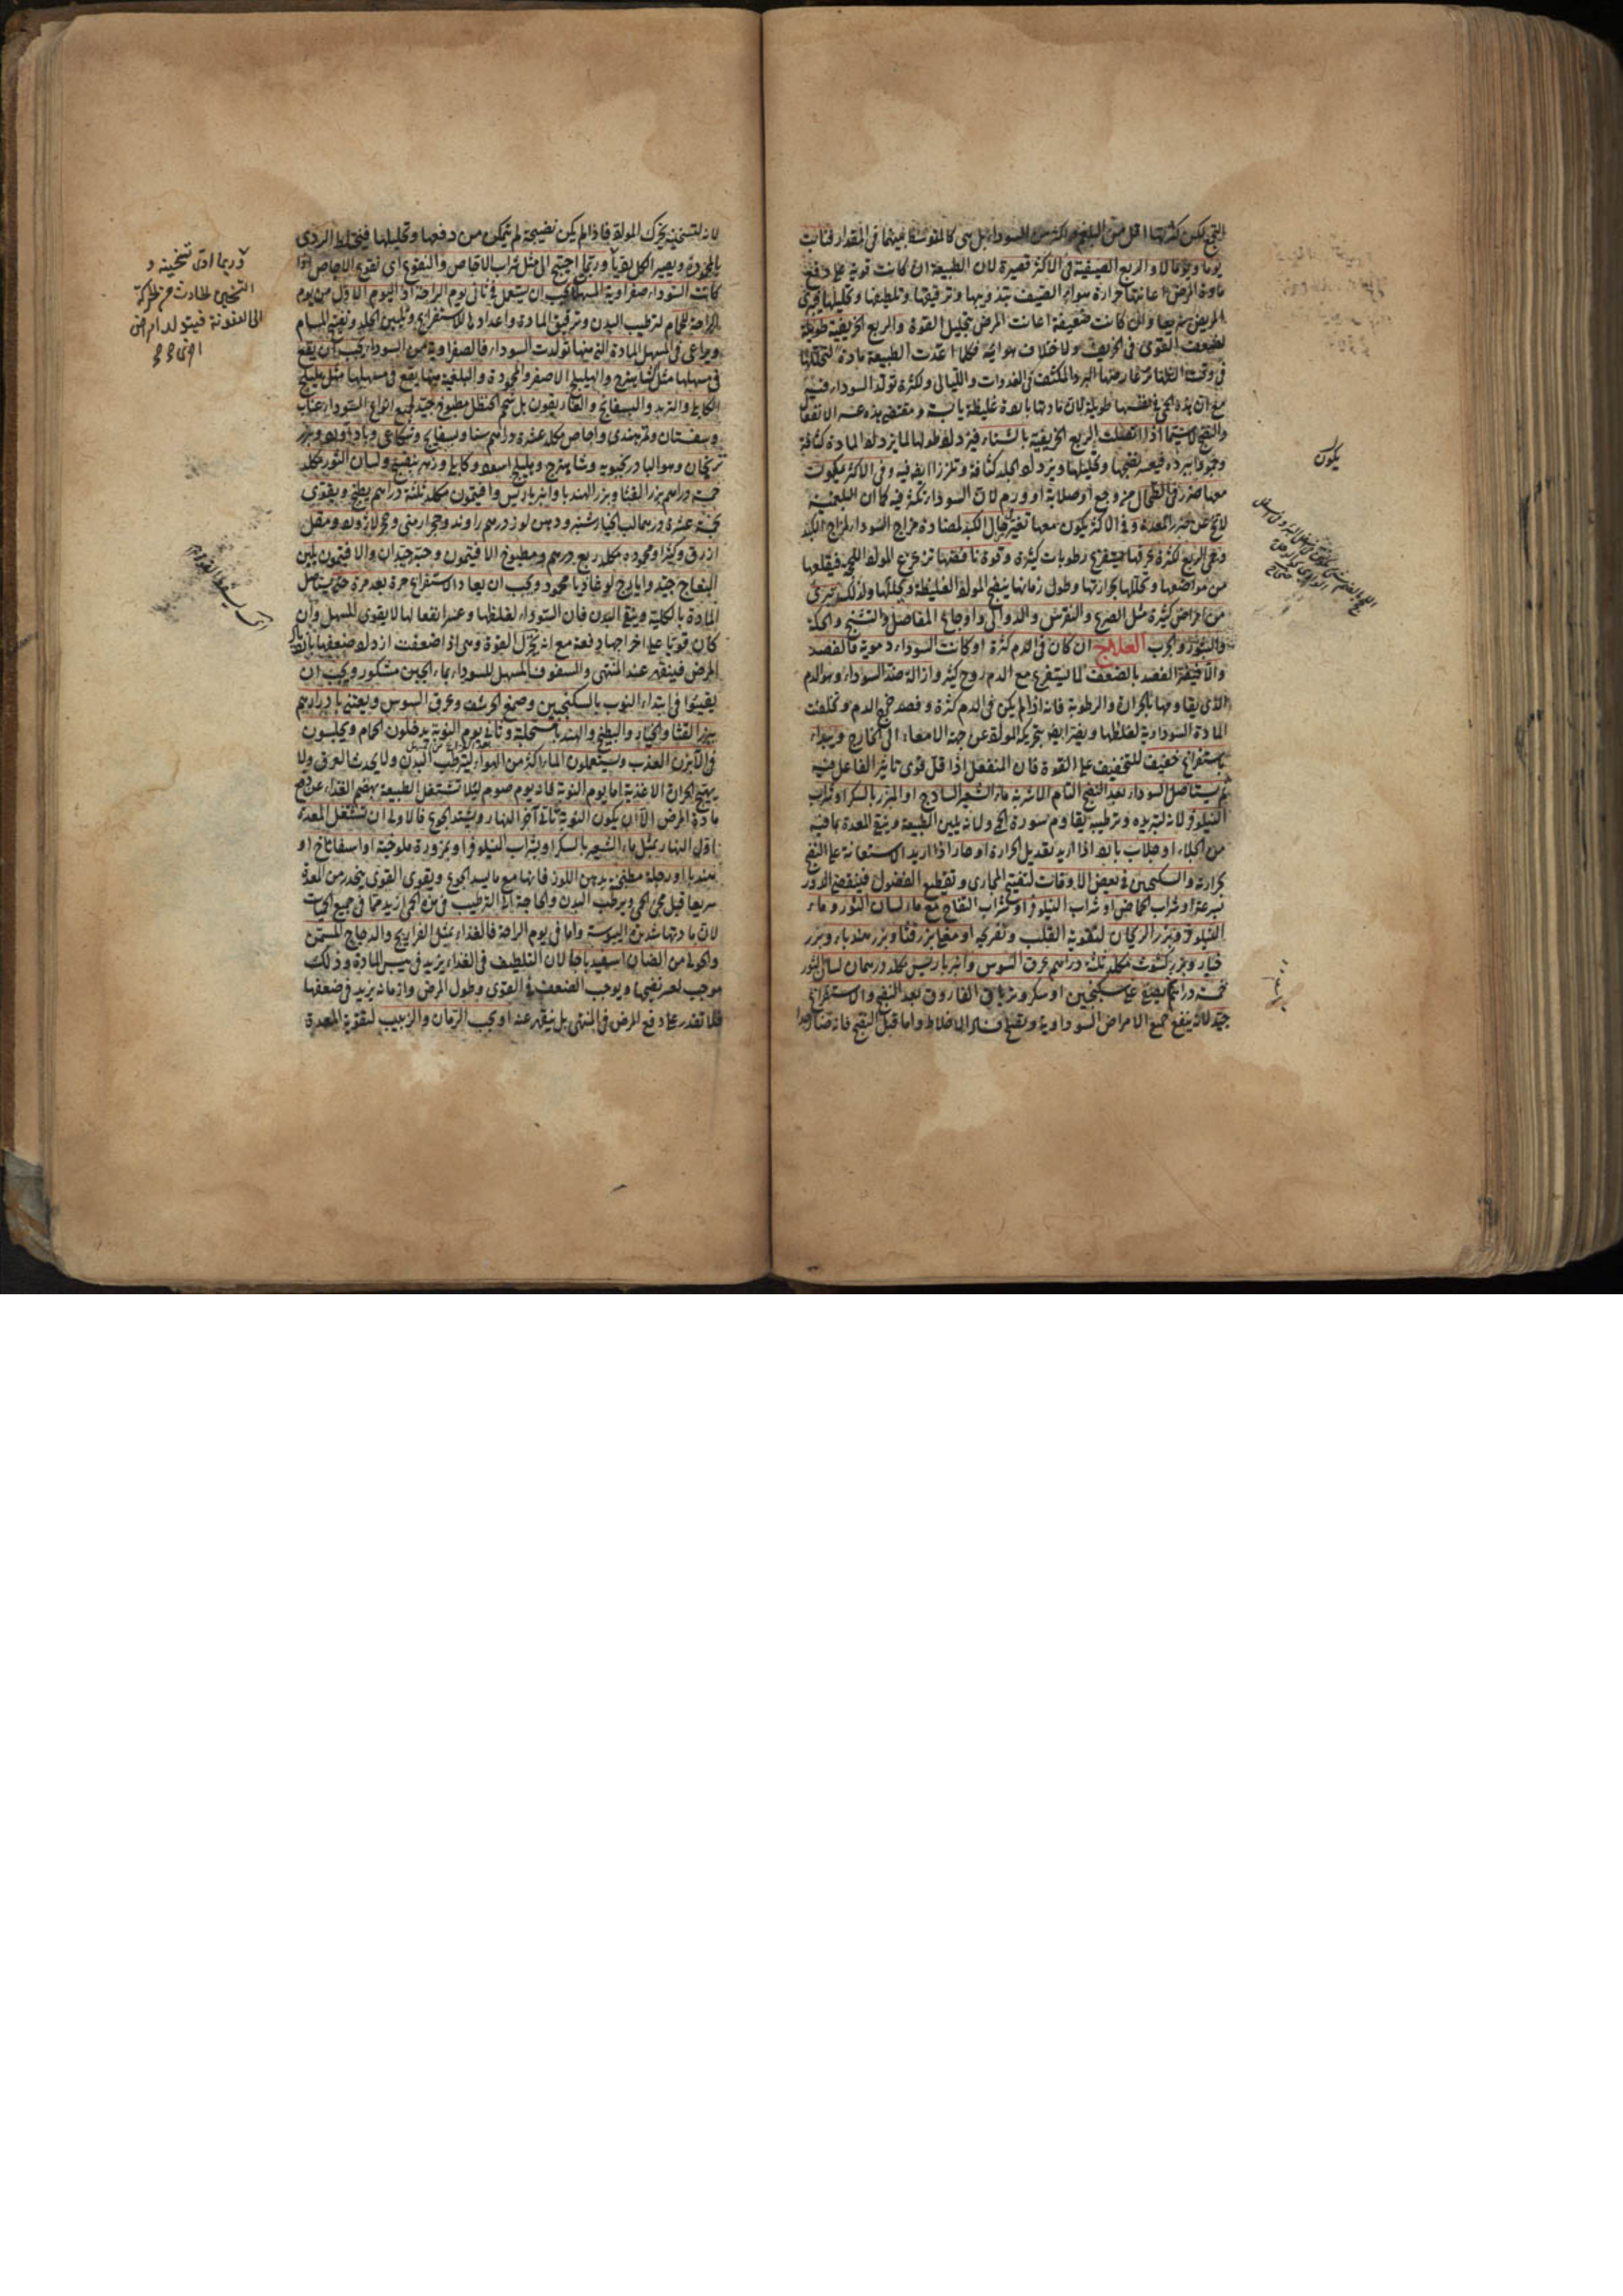 يوما ويوما لا والربع الصيفية في الاكثر قصيرة لان الطبيعة ان كانت قوية على دفع
مادة المرض اعانتها حرارة هواء الصيف بتذويبها وترقيقها وتلطيفها وتحليلها
المرض سريعا وان كانت ضعيفة اعانت المرض بتحليل القوة والربع الخريفية طويلة
لضعف القوى في الخريف ولاختلاف هوائه فكلما اعدت الطبيعة مادة لتحللها
في وقت البرد المكثف في الغدوات والليالي ولكثرة تولد السوداء فيه
مع ان هذه الحمى في نفسها طويلة لان مادتها باردة غليظة يابسة
والنضج لاسيما اذا اتصلت الربع الخريفية بالشتاء فيزداد طولها لما يزداد المادة كثافة
وجمودا ببرده فيعسر نضجها وتحليلها ويزداد الجلد كثافة وفي الاكثر يكون
معها ضرر في الطحال من وجع او صلابة او ورم لان السوداء تكثر فيه كما ان البلغمية
لا تخ عن ضرر المعدة وفي الاكثر يكون معها تغير حال الكبد لمضادة مزاج السوداء لمزاج الكبد
وحمى الربع لكثرة عرقها يستفرغ رطوبات كثيرة وقوة نافضها تزعزع المواد اللحجة فيقلعها
من مواضعها وتحللها بحرارتها وطول زمانها ينضج المواد الغليظة ويحللها ولذلك تبرئ
من امراض كثيرة مثل الصرع والنقرس والدوالي واوجاع المفاصل والتشنج والحكة
والبثور والجرب العلاج ان كان في الدم كثرة او كانت السوداء دموية فالفصد
والا فيضر الفصد بالضعف لما يستفرغ مع الدم روح كثير وازالة ضد السوداء وهو الدم
الذي يقاومها بالحرارة والرطوبة فانه اذا لم يكن في الدم كثرة وفصد خرج الدم وتخلفت
المادة السوداوية لغلظها ويضر ايضا بتحريكه المواد عن جهة الامعاء الى الخارج ويبداء
باستفراغ خفيف للتخفيف على القوة فان المنفعل اذا قل قوى تاثير الفاعل فيه
ثم يستاصل السوداء بعد النضج التام الاشربة ماء الشعير الساذج او المبزر بالسكر او شراب
النيلوفر لانه لتبريده وترطيبه يقاوم سورة الحمى ولانه يلين الطبيعة وينقي المعدة بما فيه
من الجلاء او جلاب بارد اذا اريد تعديل الحرارة او حار اذا اريد الاستعانة على النضج
بحرارته والسكنجبين في بعض الاوقات لتفتيح المجاري وتقطيع الفضول فينقضى الدور
بسرعة او شراب الحماض او شراب النيلوفر او شراب التفاح مع ماء لسان الثور وماء
النيلوفر وبزر الريحان لتقوية القلب وتفريحه او مغلى بزر قثا وبزر هندباء وبزر
خيار وبزر كشوث مكلد ثلثة دراهم عرق السوس وانبرباريس مكلد درهمان لسان الثور
خمسة دراهم يصفى على سكنجبين او سكر وترياق الفاروق بعد النضج والاستفراغ
جيد لانه ينفع جميع الامراض السوداوية ويقطع فساد الاخلاط واما قبل النضج فانه ضار جدا
يكون
لانه لتسخينه يحرك المواد فاذا لم يكن نضيجة لم يتمكن من دفعها وتحليلها فيختلط الردى
بالجيد ويصير الكل رديا وربما احتيج الى مثل شراب الاجاص والنقوع اى نقوع الاجاص اذا
كانت السوداء صفراوية المسهل يجب ان يستعمل في ثاني يوم الراحة او اليوم الاول من يوم
الراحة الحمام لترطيب البدن وترقيق المادة واعدادها للاستفراغ وتليين الجلد وتفتيح المسام
ويراعى في المسهل المادة التي منها تولدت السوداء فالصفراوية من السوداء يجب ان يقع
في مسهلها مثل الشاهترج والهليلج الاصفر والمحمودة والبلغمية منها يقع في مسهلها مثل هليلج
الكابلي والتربد والبسفايج والغاريقون بل شحم الحنظل مطبوخ جيد لجميع انواع السوداء عناب
وسفستان وتمرهندي واجاص مكلد عشرة دراهم سنا وبسفايج وشكاعى وباداورد وبزر
ريحان وهو البادرنجبويه وشاهترج وهليلج اسود وكابلي وزهر بنفسج ولسان الثور مكلد
خمسة دراهم بزر القثا وبزر الهندبا وانبرباريس وافتيمون مكلد ثلثة دراهم يطبخ ويقوى
بخمسة عشرة درهما لب الخيارشنبر ودهن لوز درهم راوند وحجر ارمني وحجر لازورد ومقل
ازرق وكثيرا ومحموده مكلد ربع درهم ومطبوخ الافتيمون وحبه جيدان والافتيمون بلبن
النعاج جيد وايارج لوغاذيا محمود ويجب ان يعاد الاستفراغ مرة بعد مرة حتى يستاصل
المادة بالكلية وينقى البدن فان السوداء لغلظها وعسر انفعالها لا يقوى المسهل وان
كان قويا على اخراجها دفعة مع انه يخزل القوة وهي اذا ضعفت ازداد ضعفها
المرض فينقهر عند المنتهى والسفوف المسهل للسوداء بماء الجبن مشكور ويجب ان
يقيئوا في ابتداء النوب بالسكنجبين وصمغ الحرشف وعرق السوس ويعتنى بادرارهم
ببزر القثا والخيار والبطيخ والهندبا مستحلبة وثاني يوم النوبة يدخلون الحمام ويجلسون
في الابزن العذب ويستعملون الماء اكثر من الهواء ليترطب البدن ولا يحدث العرق ولا
يهيج الحرارة الاغذية اما يوم النوبة فانه يوم صوم لئلا تشتغل الطبيعة بهضم الغذاء عن دفع
مادة المرض الا ان يكون النوبة تاتي آخر النهار ويشتد الجوع فالاولى ان تشتغل المعدة
اول النهار بمثل ماء الشعير بالسكر او بشراب النيلوفر او بمزورة ملوخية او اسفاناخ او
هندبا او رجلة مطبخة بدهن اللوز فانها مع ما يسد الجوع ويقوى القوى ينحدر من المعدة
سريعا قبل مجئ الحمى ويرطب البدن والحاجة الى الترطيب في هذه الحمى ازيد مما في جميع الحميات
لان مادتها شديدة اليبوسة واما في يوم الراحة فالغذاء بمثل الفراريج والدجاج المسمن
والحولى من الضان اسفيدباجا لان التلطيف في الغذاء يزيد في يبس المادة وذلك
موجب لعسر نضجها ويوجب الضعف في القوى وطول المرض وازمانه يزيد في ضعفها
فلا تقدر على دفع المرض في المنتهى بل ينقهر عنه او يجب الرمان والزبيب لتقوية المعدة
وربما ادى تسخينه و
التسخين الحادث من الحركة
الى العفونة فيتولد امراض
اخرى